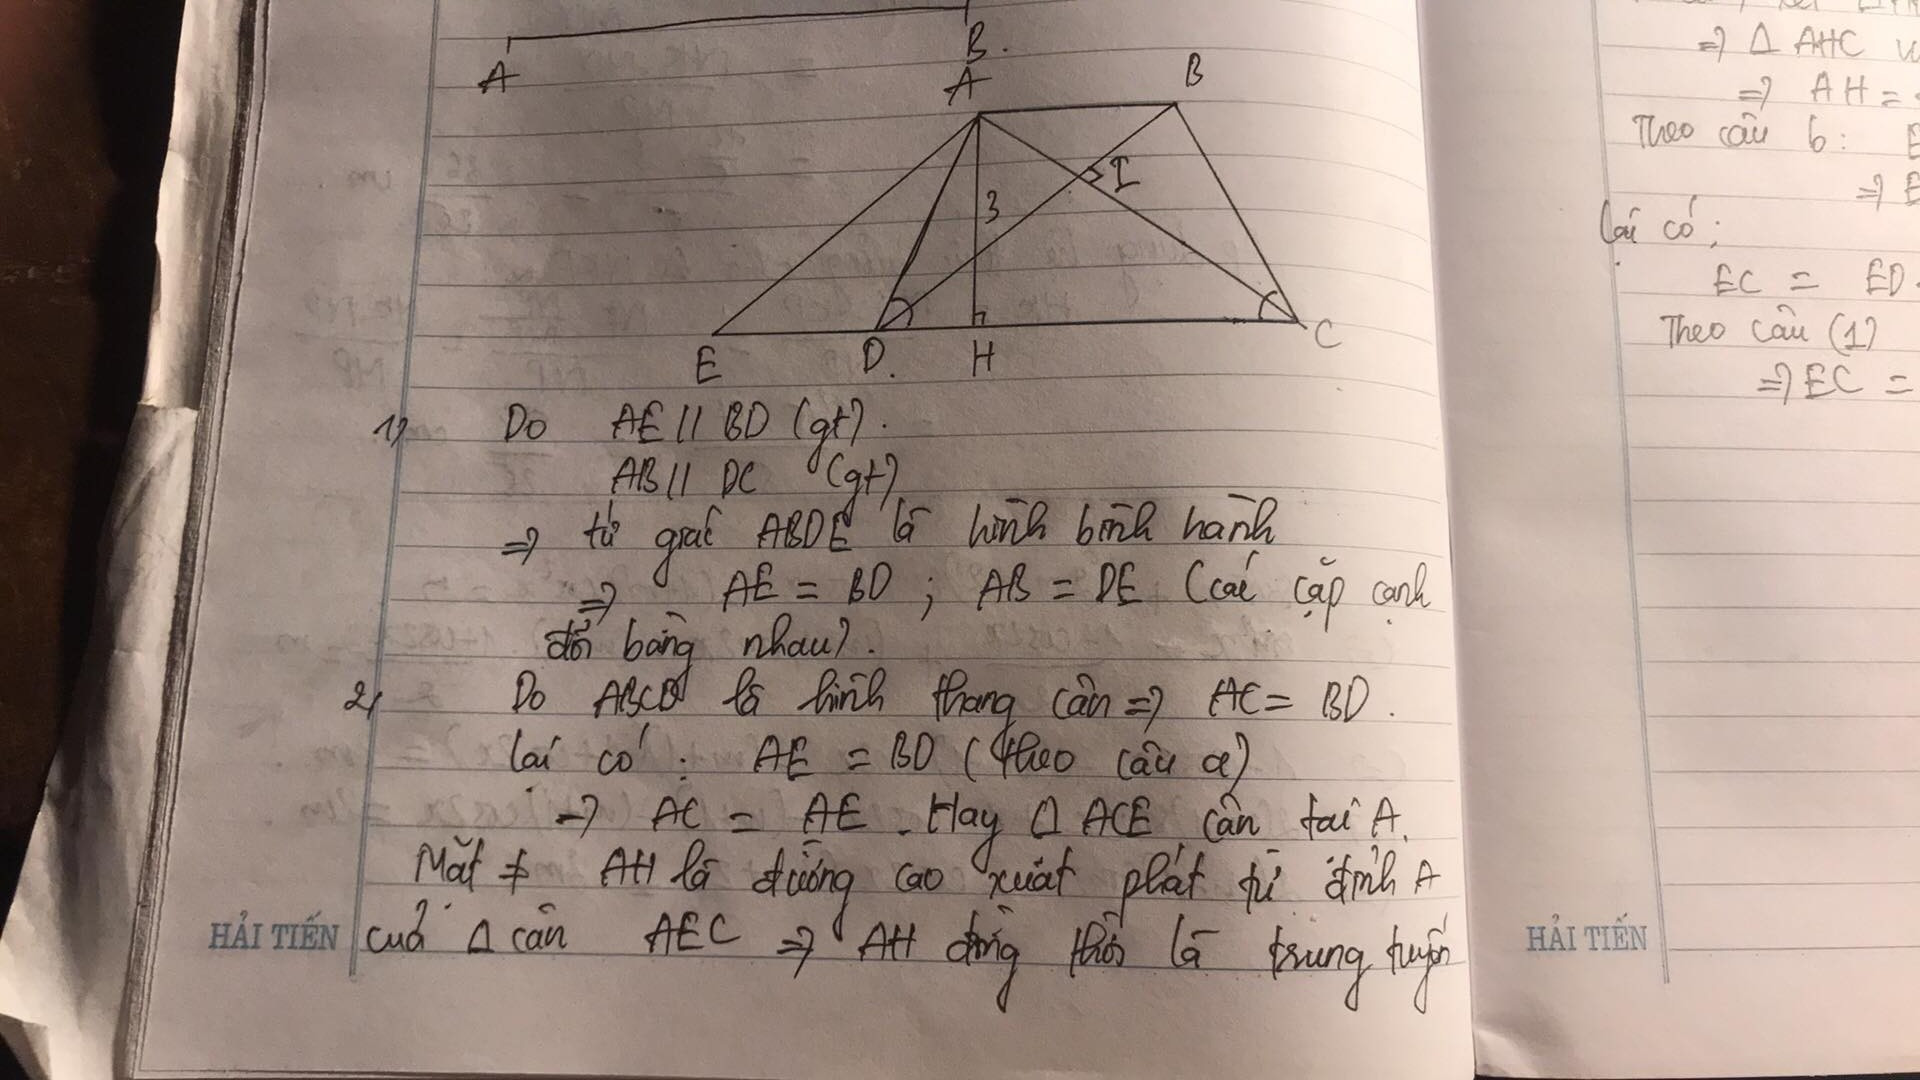 A
B.
A
B
3
I
E
D.
H
C
1)
Do AE // BD (gt).
AB // DC (gt)
=> tứ giác ABDE là hình bình hành
=> AE = BD ; AB = DE (các cặp cạnh
đối bằng nhau).
2)
Do ABCD là hình thang cân => AC = BD.
lại có : AE = BD (theo câu a)
=> AC = AE. Hay Δ ACE cân tại A.
Mặt ≠ AH là đường cao xuất phát từ đỉnh A
HẢI TIẾN
của Δ cân AEC => AH đồng thời là trung tuyến
=> Δ AHC
=> AH =
Theo câu b:
=> E
lại có ;
EC = ED
Theo câu (1)
=> EC =
HẢI TIẾN